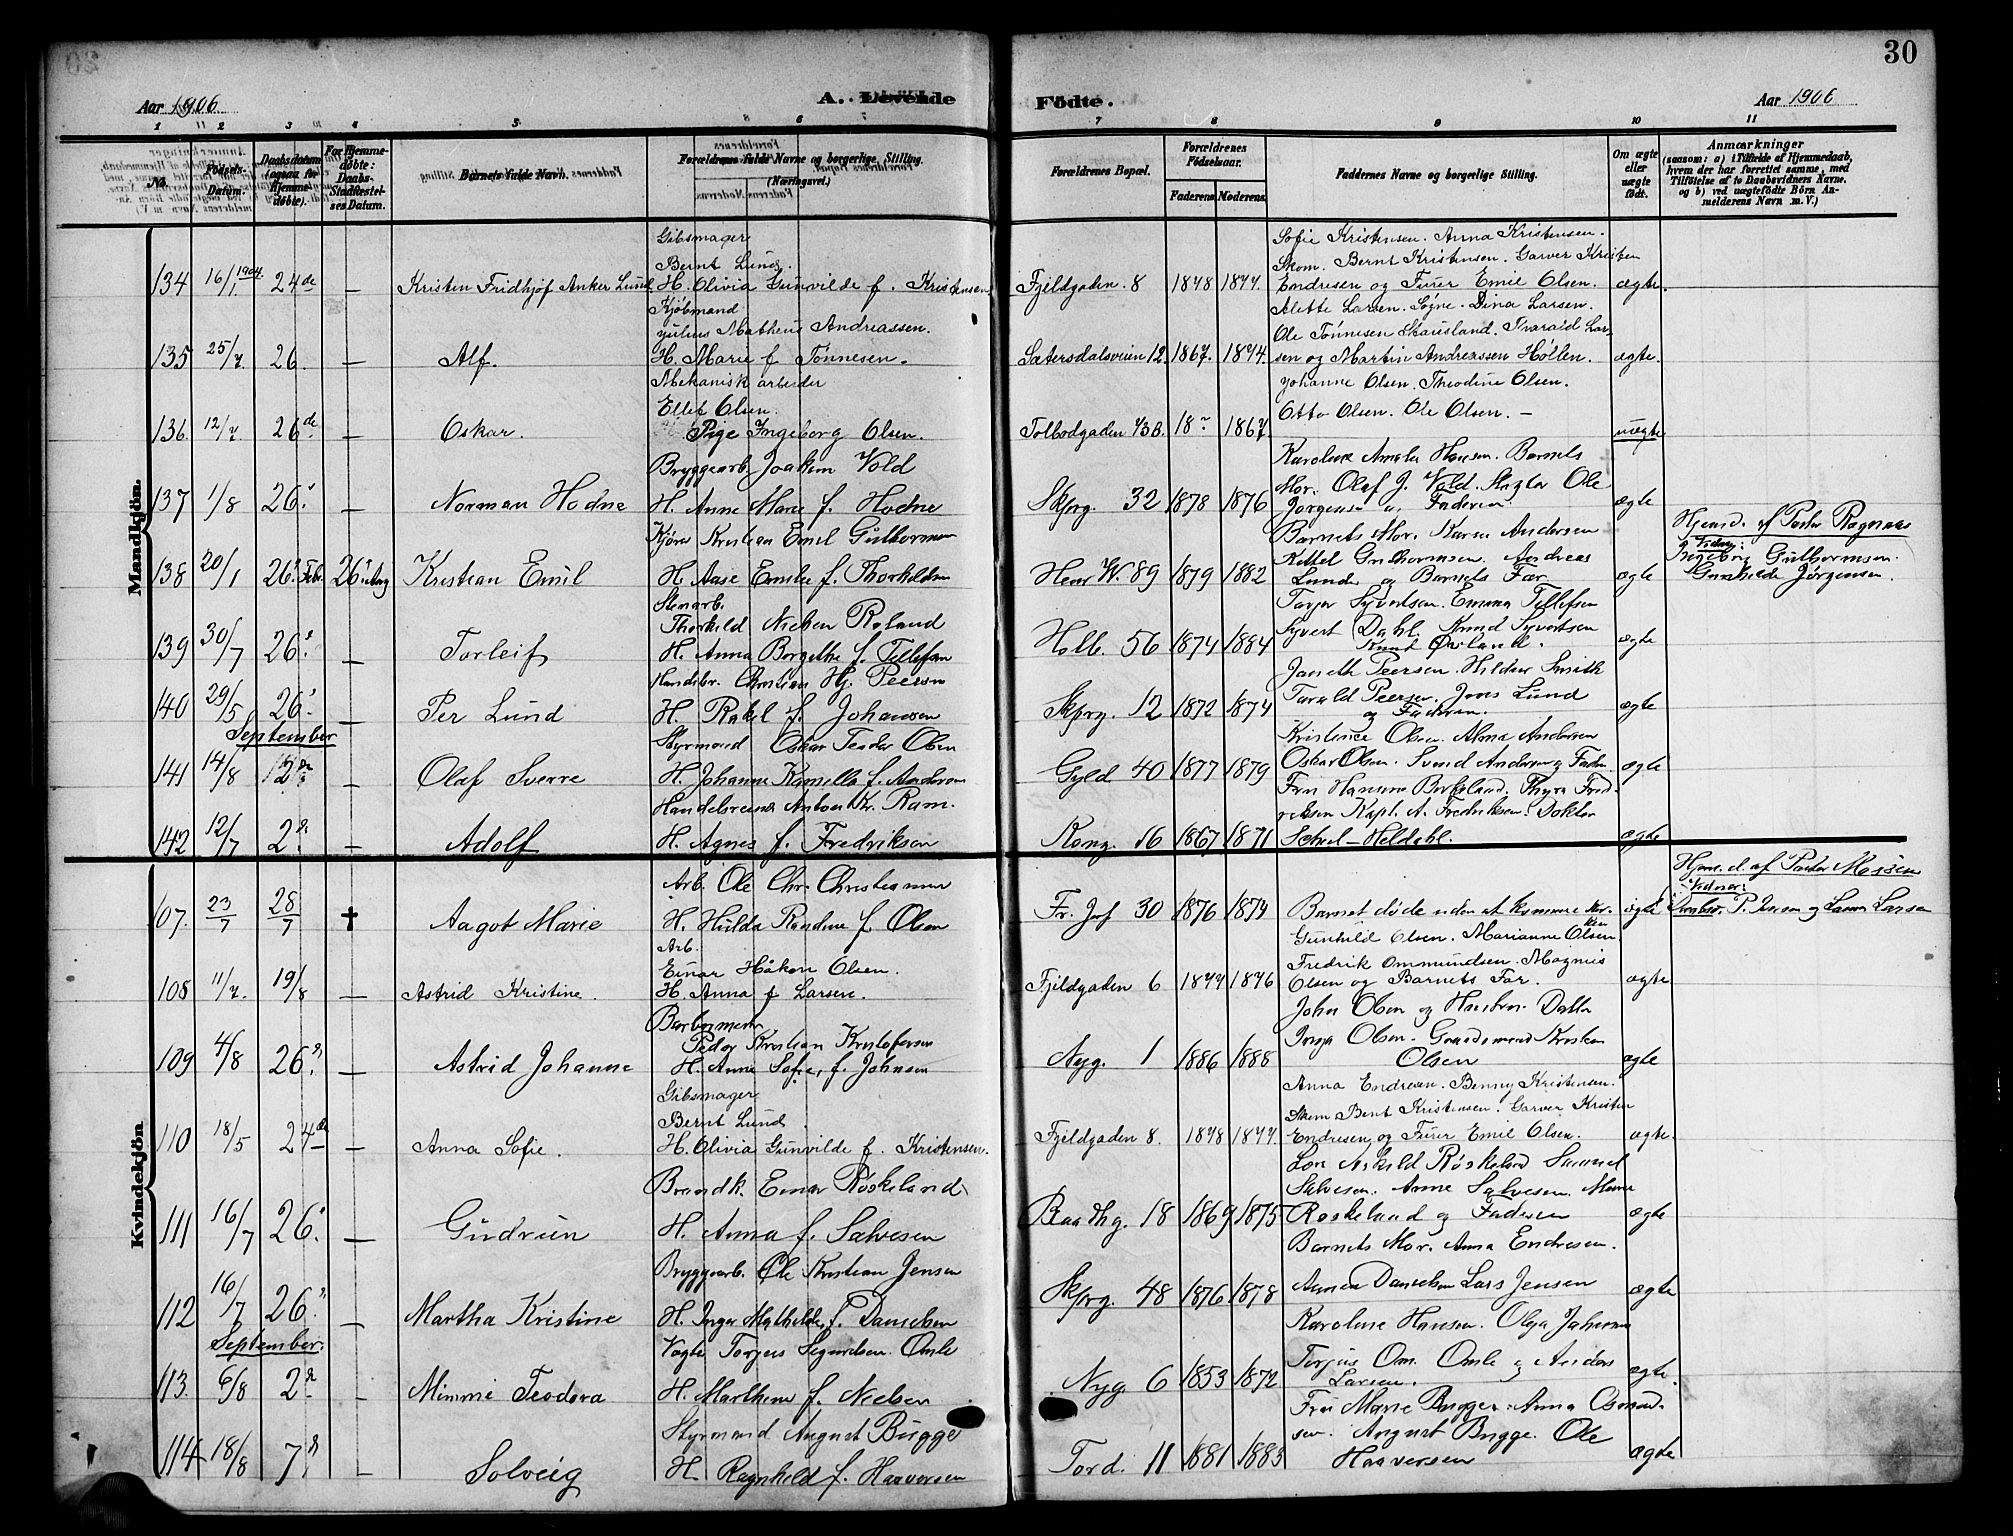 30
Aar 1906
A. Levende Födte.
Aar 1906
1 2 3 4 5 6 7 8 9 10 11
No.
Födsels-Datum.
Daabsdatum (ogsaa for Hjemme-döbte).
For Hjemme-döbte: Daabs-Stadfæstel-ses Datum.
Barnets fulde Navn.
Forældrenes fulde Navne og borgerlige Stilling. (Næringsvei.)
Forældrenes Bopæl.
Forældrenes Födselsaar.
Faderens Moderens
Faddernes Navne og borgerlige Stilling.
Om ægte eller uægte födt.
Anmærkninger
(saasom: a) i Tilfælde af Hjemmedaab, hvem der har forrettet samme, med Tilföielse af to Daabsvidners Navne. og b) ved uægtefödte Börn An-melderens Navn m. V.)
Mandkjön.
Gibsmager
Bernt Lund.
134 16/1 1904. 24de — Kristen Fridhjof Anker Lund H. Olivia Gunvilde f. Kristensen Fjeldgaden 8 1848 1877. ægte.
Sofie Kristensen. Anna Kristensen.
Skom. Bernt Kristensen. Garver Kristen
Endresen og Furer Emil Olsen.
Kjöbmand
Julius Matheus Andreassen.
135 25/7 26. — Alf. H. Marie f Tönnesen. Sætersdalsveien 12. 1867. 1874. ægte.
Alette Larsen. Søgne. Dina Larsen.
Ole Tönnesen Skarisland. Tharald Lar-
sen og Martin Andreassen Höllen.
Mekanisk arbeider
Ellef Olsen.
136 12/7 26de — Oskar. Pige Ingeborg Olsen. Tolbodgaden 73B. 18? 1867. uægte
Johanne Olsen. Theodine Olsen.
Otto Olsen. Ole Olsen. —
Bryggearb. Joakim Vold
137 1/8 26. — Norman Hodne H. Anne Marie f. Hodne Skprg. 32 1878 1876 ægte
Karoline Amalie Hansen. Barnets
Mor. Olaf J. Vold. Slagter Ole
Jörgensen og Faderen
Kjörer Kristian Emil Guthormsen
138 20/1 26. Febr. 26. Aug Kristian Emil H. Aase Emilie f. Thorkildsen Henr W. 89 1879 1882 ægte
Barnets Mor. Karen Andersen
Kittel Guthormsen. Andreas
Lund og Barnets Far
Hjemd. af Pastor Ragnaas
Vidner:
Ingeborg Guthormsen.
Gunhilde Jörgensen.
Stenarb.
Thorkild Nielsen Roland
139 30/7 26. — Torleif H. Anna Borgethe f. Tellefsen Holb. 56 1874 1884 ægte
Tarjer Syvertsen. Emma Tellefsen
Syvert Dahl. Knud Syvertsen
Knut Øvland.
Handelsr. Christian Hj. Peersen
140 29/5 26. — Per Lund H. Rakel f. Johansen Skprg. 12 1872 1874 ægte
Janeth Peersen. Hildur Smith
Tarald Peersen. Jens Lund
og Faderen.
September
Styrmand Oskar Teodor Olsen
141 14/8 2den — Olaf Sverre H. Johanne Kamilla f. Andersen Gyld 40 1877 1879 ægte
Kristense Olsen. Alma Andersen
Oskar Olsen. Svend Andersen og Faderen
Handelsreisende Anton Kr. Ram.
142 12/7 2den — Adolf H. Agnes f. Fredriksen Kong. 16 1867 1871 ægte
Fru Hansine Birkeland. Thyra Fred-
riksen Kapt. A. Fredriksen. Doktor
Scheel-Heldahl.
Kvindekjön.
Arb. Ole Chr. Christiansen
107. 23/7 28/7 ✝ Aagot Marie H. Hulda Randine f. Olsen Fr. Jof 30 1876 1874 Barnet döde uden at komme i kir-
ken
ægte
Hjem. d. af Pastor Messen
Vidner:
P. Jensen og Laura Larsen
Arb.
Einar Håkon Olsen.
108 11/7. 19/8 — Astrid Kristine. H. Anna f Larsen. Fjeldgaden 6 1877 1876 ægte
Gunhild Olsen. Marianne Olsen.
Fredrik Ommundsen. Magnus
Olsen og Barnets Far.
Barbermester
Peder Kristian Kristofersen
109 4/8 26. — Astrid Johanne H. Anne Sofie, f. Johnsen Nyg. 1 1886 1888 ægte
John Olsen og Hustru. Datter
Inga Olsen. Gaardsmand Kristen
Olsen
Gibsmager
Bernt Lund.
110 18/5 24de — Anna Sofie. H. Olivia Gunvilde f. Kristensen. Fjeldgaden 8. 1848 1877. ægte.
Anna Endresen. Benny Kristensen.
Skom Bent Kristensen. Garver Kristen
Endresen og Furer Emil Olsen.
Brandk. Einar Röskeland
111 16/7 26. — Gudrun H. Anna f. Salvesen Baadhg. 18 1869 1875 ægte
Askild Röskeland Samuel
Salvesen. Anne Salvesen. Marie
Röskeland og Faderen
Bryggearb. Ole Kristian Jensen
112 16/7 26. — Martha Kristine H. Inger Mathilde, f. Danielsen Skprg. 48 1876 1878 ægte
Barnets Mor. Anna Endresen.
Danielsen Lars Jensen
September.
Vægter Torjus Sigurdsen Omle
113. 6/8 2den — Mimmi Teodora H. Marthine f. Nielsen Nyg. 6 1853 1872 ægte.
Karoline Hansen. Olga Johansen
Torjus Om. Omle og Anders
Larsen.
Styrmand August Bugge
114 18/8 7de — Solveig H. Ragnhild f. Haaversen Tord. 11 1881 1883 ægte
Fru Marie Bugge. Anna Osmund-
sen. August Bugge. Ole
Haaversen